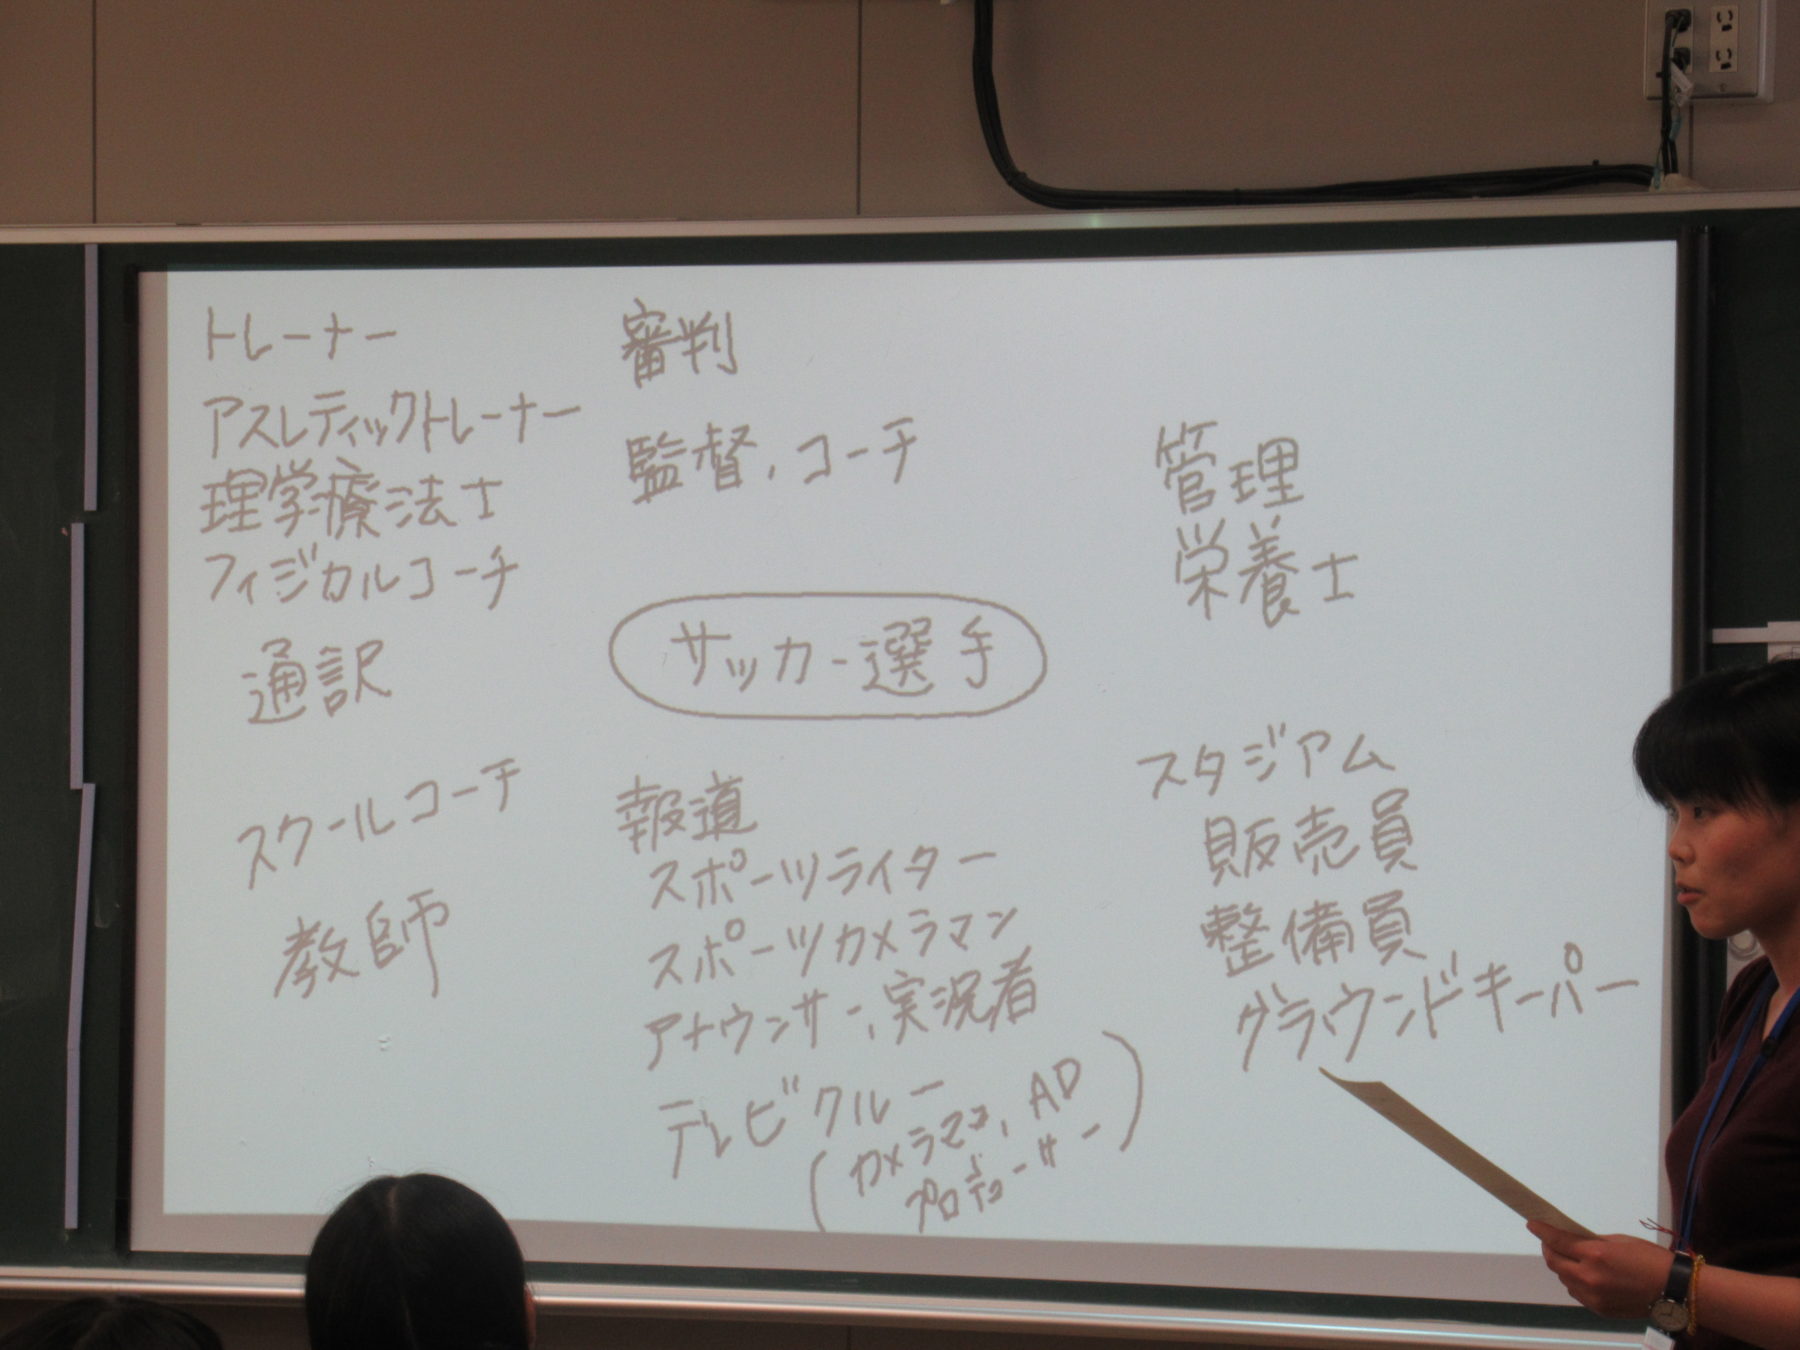 トレーナー
アスレティックトレーナー
理学療法士
フィジカルコーチ
通訳
スクールコーチ
教師
審判
監督、コーチ
サッカー選手
報道
スポーツライター
スポーツカメラマン
アナウンサー、実況者
テレビクルー
(カメラマン、AD
プロデューサー)
管理
栄養士
スタジアム
販売員
整備員
グラウンドキーパー